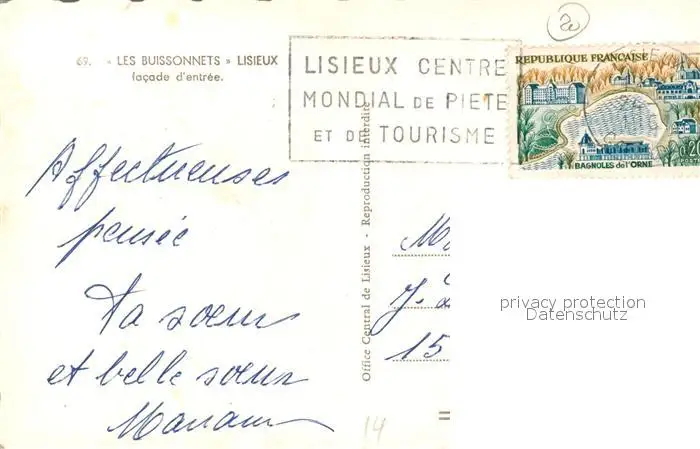 69. - « LES BUISSONNETS » LISIEUX
façade d'entrée.
LISIEUX CENTRE
MONDIAL DE PIETE
ET DE TOURISME
REPUBLIQUE FRANÇAISE
BAGNOLES de l'ORNE
0,20
POSTES
Affectueuses
pensée
Ta sœur
et belle sœur
Office Central de Lisieux - Reproduction interdite
M.
15
privacy protection
Datenschutz
14